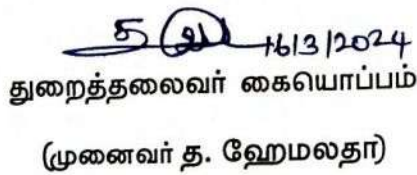 16/3/2024
துறைத்தலைவர் கையொப்பம்
(முனைவர் த. ஹேமலதா)